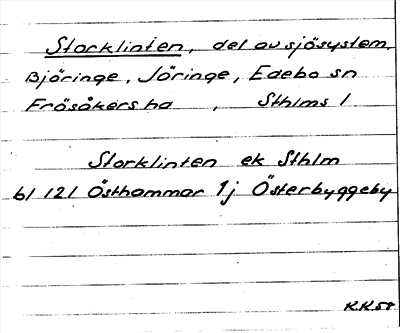 Storklinten, del av sjösystem,
Björinge, Jöringe, Edebo sn
Frösåkers hd , Sthlms l
Storklinten ek Sthlm
bl 121 Östhammar 1j Österbyggeby
K.K.58